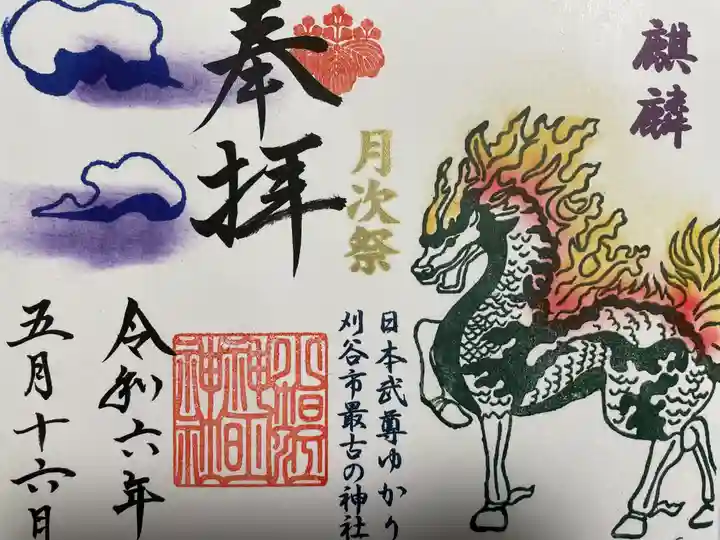 麒麟
奉拝
月次祭
日本武尊ゆかり
刈谷市最古の神社
令和六年
五月十六日